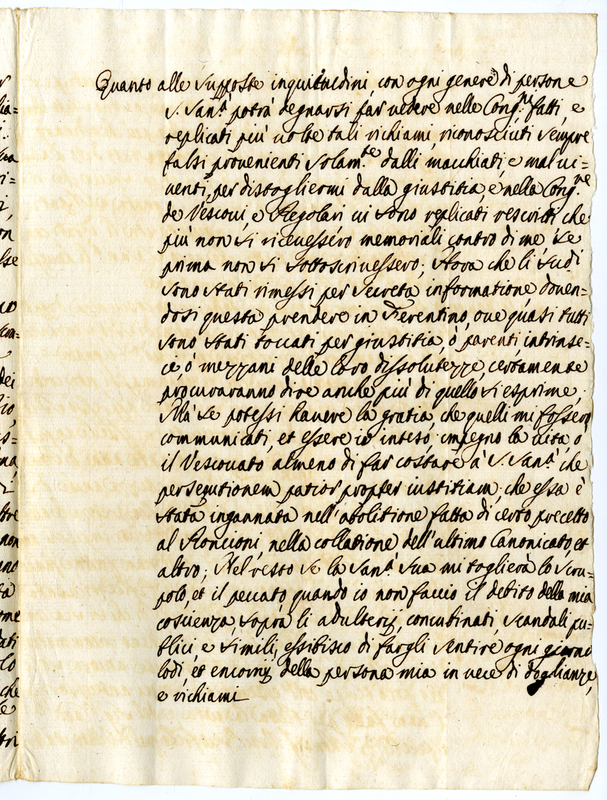 Quanto alle supposte inquietudini, con ogni genere di persone
S. San.tà potrà degnarsi far vedere nelle Cong.ni fatti, e
replicati più volte tali richiami, riconosciuti sempre
falsi provenienti solam.te dalli macchiati, e mal vi=
venti, per distogliermi dalla giustitia, e nella Cong.ne
de Vescovi, e Regolari vi sono replicati rescritti, che
più non si ricevessero memoriali contro di me, se
prima non si sottoscrivessero; Hora che li sud.i
sono stati rimessi per secreta informatione, doven=
dosi questa prendere in Fierentino, ove quasi tutti
sono stati toccati per giustitia, ò parenti intrinse=
ci, ò mezzani delle loro dissolutezze, certamente
procuraranno dire anche più di quello si esprime;
Mà se potessi havere la gratia, che quelli mi fossero
communicati, et essere io inteso, impegno la vita, ò
il Vescovato almeno di far costare à S. San.tà che
persequtionem patior propter iustitiam; che essa è
stata ingannata nell'abolitione fatta di certo precetto
al Roncioni, nella collatione dell'ultimo Canonicato, et
altro; Nel resto se la San.tà Sua mi toglierà lo scru=
polo, et il peccato, quando io non faccio il debito della mia
coscienza, sopra li adulterij, concubinati, scandali pu=
blici, e simili, essibisco di fargli sentire ogni giorno
lodi, et encomij della persona mia in vece di doglianze,
e richiami